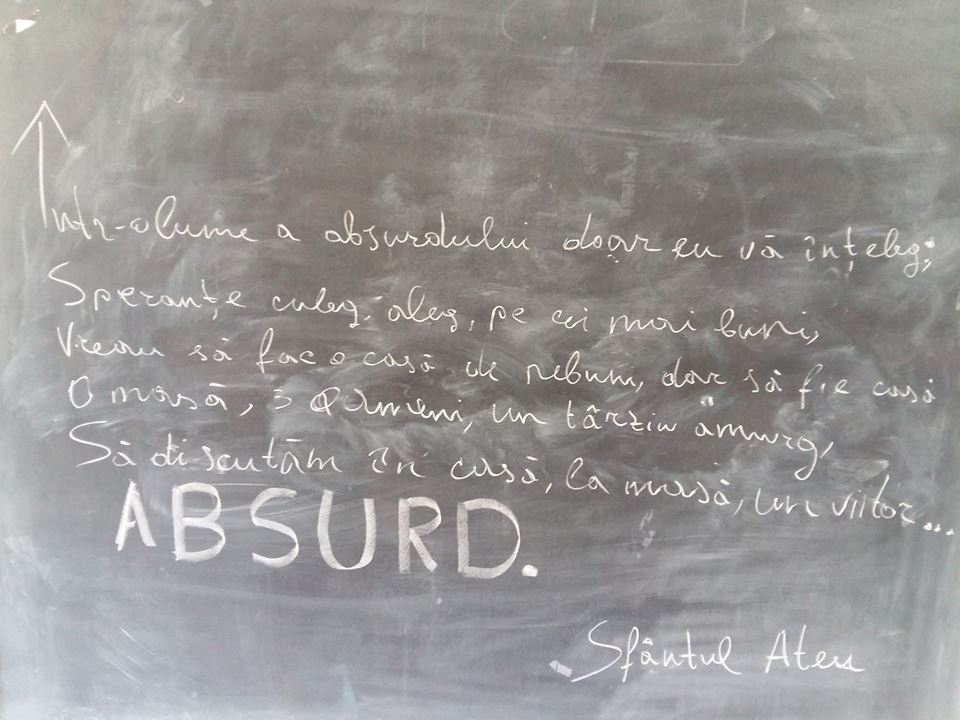 Într-o lume a absurdului doar eu vă înțeleg;
Speranțe culeg, aleg, pe cei mai buni,
Vreau să fac o casă de nebuni, dar să fie casă
O masă, 3 oameni, un târziu amurg,
Să discutăm în casă, la masă, un viitor...
ABSURD.
Sfântul Ateu